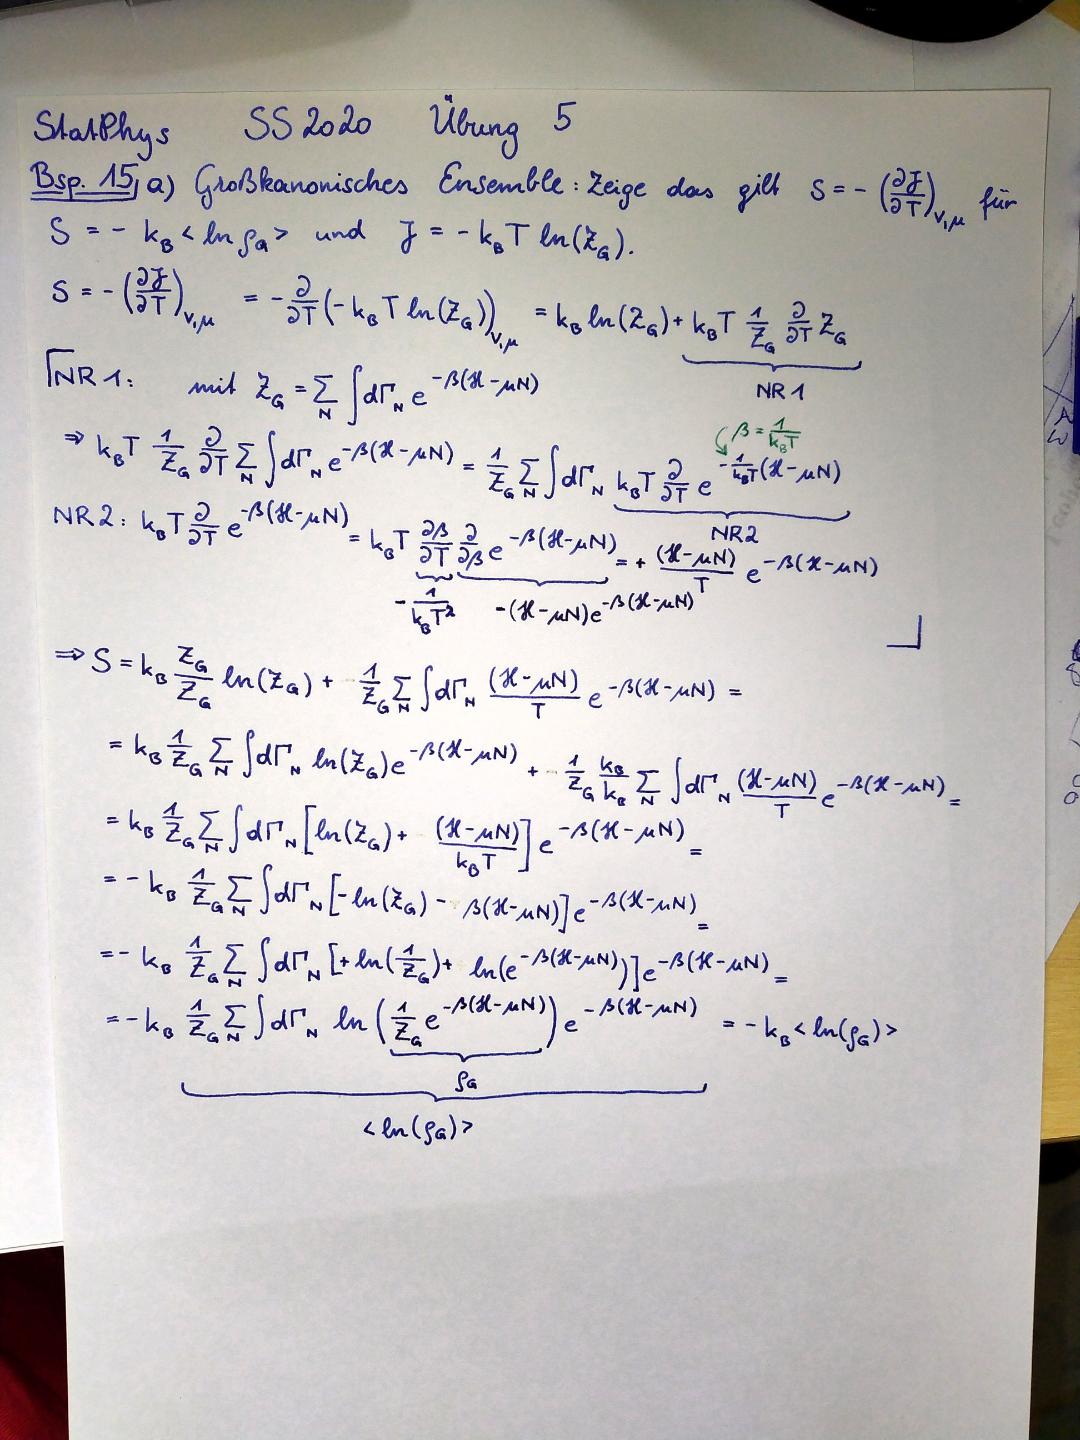 StatPhys SS 2020 Übung 5
Bsp. 15, a) Großkanonisches Ensemble: Zeige das gilt S = - (∂J/∂T)_{V,μ} für
S = - k_B <ln ρ_G> und J = - k_B T ln(Z_G).
S = - (∂J/∂T)_{V,μ} = - ∂/∂T (- k_B T ln(Z_G))_{V,μ} = k_B ln(Z_G) + k_B T 1/Z_G ∂/∂T Z_G
NR 1
NR 1: mit Z_G = Σ_N ∫dΓ_N e^{-β(H-μN)}
β = 1/(k_B T)
⇒ k_B T 1/Z_G ∂/∂T Σ_N ∫dΓ_N e^{-β(H-μN)} = 1/Z_G Σ_N ∫dΓ_N k_B T ∂/∂T e^{-1/(k_B T)(H-μN)}
NR2
NR 2: k_B T ∂/∂T e^{-β(H-μN)} = k_B T ∂β/∂T ∂/∂β e^{-β(H-μN)} = + (H-μN)/T e^{-β(H-μN)}
- 1/(k_B T²) -(H-μN)e^{-β(H-μN)}
⇒ S = k_B Z_G/Z_G ln(Z_G) + 1/Z_G Σ_N ∫dΓ_N (H-μN)/T e^{-β(H-μN)} =
= k_B 1/Z_G Σ_N ∫dΓ_N ln(Z_G)e^{-β(H-μN)} + 1/Z_G k_B/k_B Σ_N ∫dΓ_N (H-μN)/T e^{-β(H-μN)} =
= k_B 1/Z_G Σ_N ∫dΓ_N [ln(Z_G) + (H-μN)/(k_B T)] e^{-β(H-μN)} =
= - k_B 1/Z_G Σ_N ∫dΓ_N [-ln(Z_G) - β(H-μN)] e^{-β(H-μN)} =
= - k_B 1/Z_G Σ_N ∫dΓ_N [+ ln(1/Z_G) + ln(e^{-β(H-μN)})] e^{-β(H-μN)} =
= - k_B 1/Z_G Σ_N ∫dΓ_N ln(1/Z_G e^{-β(H-μN)}) e^{-β(H-μN)} = - k_B <ln(ρ_G)>
ρ_G
<ln(ρ_G)>